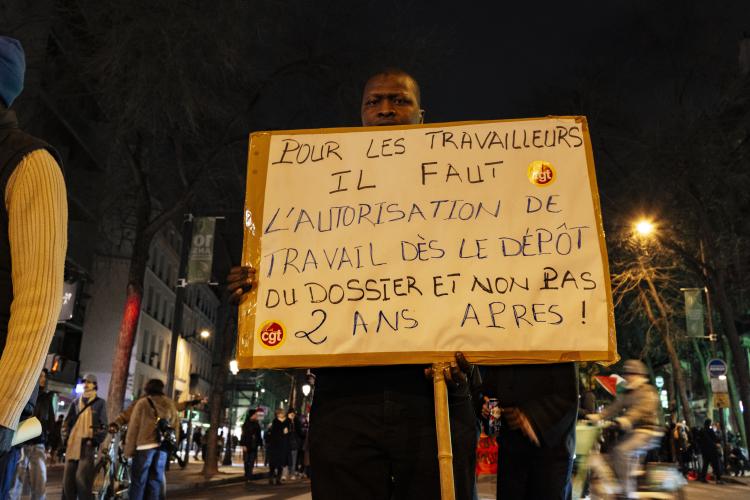 POUR LES TRAVAILLEURS
IL FAUT
cgt
L'AUTORISATION DE
TRAVAIL DÈS LE DÉPÔT
DU DOSSIER ET NON PAS
2 ANS APRES !
cgt